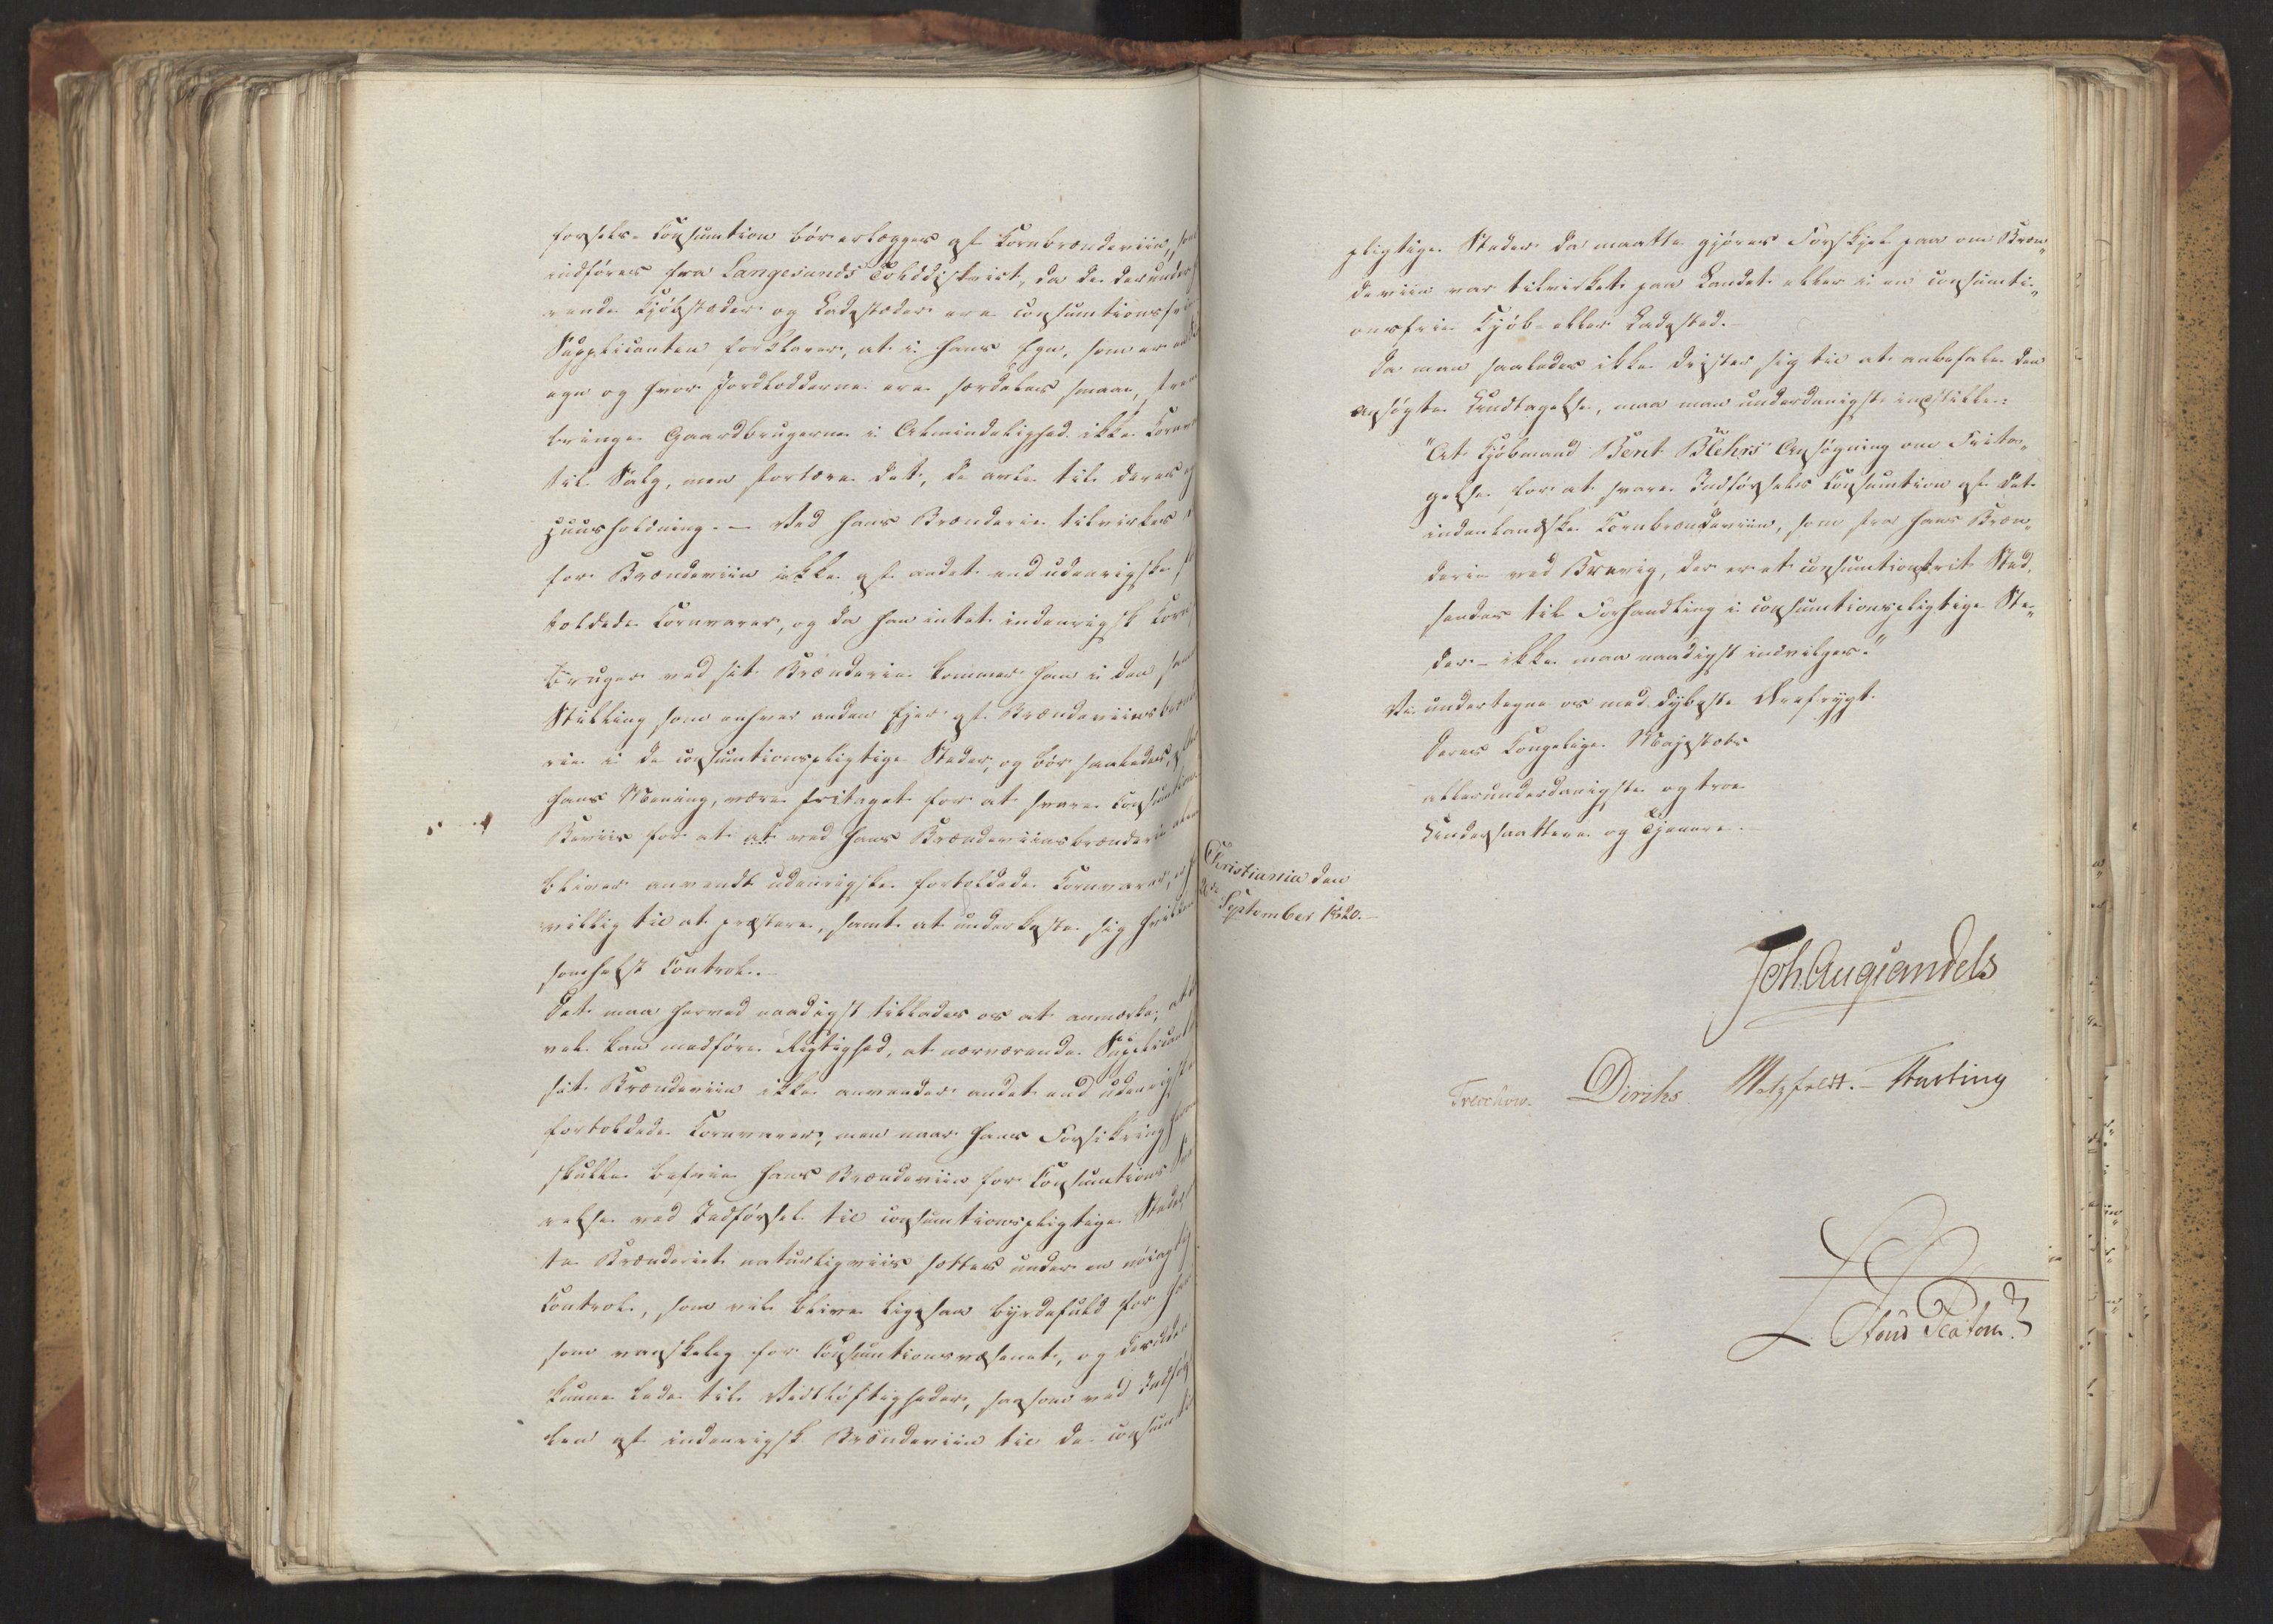 førsels-Consumtion bør erlægges af Kornbrændeviin, som
indføres fra Langesunds Tolddistrict, da de derunder
rende Kjøbstæder og Ladestæder ere consumtionsfrie
Supplicanten forklarer, at i hans Egn, som er en
egn og hvor Jordlodderne ere særdeles smaae, frem
bringe Gaardbrugerne i Almindelighed ikke Korn
til Salg, men fortære det, de avle til deres
Huusholdning. – Ved hans Brænderie tilvirkes
for Brændeviin ikke af andet end udenrigske for
toldede Kornvarer, og da han intet indenrigsk Korn
bruger ved sit Brænderie kommer han i den samme
Stilling som enhver anden Ejer af Brændeviinsbrænde
rie i de consumtionspligtige Stæder, og bør saaledes, efter
hans Mening, være fritaget for at svare Consumtion
Beviis for at at ved hans Brændeviinsbrænderie alene
bliver anvendt udenrigske fortoldede Kornvarer, er han
villig til at præstere, samt at underkaste sig hvilken
somhelst Control. –
Det maa herved naadigst tillades os at anmærke, at det
vel kan medføre Rigtighed, at nærværende Supplicant
sit Brændeviin ikke anvender andet end udenrigske
fortoldede Kornvarer, men naar hans Forsikring herom
skulle befrie hans Brændeviin for Consumtions Sva
relse ved Indførsel til consumtionspligtige Stæder
te Brænderiet naturligviis sættes under en nøiagtig
Control, som vil blive ligesaa byrdefuld for ham
som vanskelig for Consumtionsvæsenet, og desuden
kunne lede til Vidtløftigheder, saasom ved Indførs
len af indenrigsk Brændeviin til de consumti
pligtige Stæder da maatte gjøres Forskjel paa om Bræn„
deviin var tilvirket paa Landet eller i en consumti„
onsfrie Kjøb- eller Ladested. –
Da man saaledes ikke drister sig til at anbefale den
ansøgte Undtagelse, maa man underdanigst indstille:
"At Kjøbmand Bent Blehrs Ansøgning om Frita„
gelse for at svare Indførsels Consumtion af det
indenlandske Kornbrændeviin, som fra hans Bræn„
derie ved Brevig, der er et consumtionsfrit Sted,
sendes til Forhandling i consumtionspligtige Stæ„
der – ikke maa naadigst indvilges."
Vi undertegne os med dybeste Ærefrygt.
Deres Kongelige Majestæts
allerunderdanigste og troe
Undersaattere og Tjenere.
Christiania den
September 1820. –
Joh. Aug Sandels
Treschow. Diriks. Motzfeldt. – Fasting